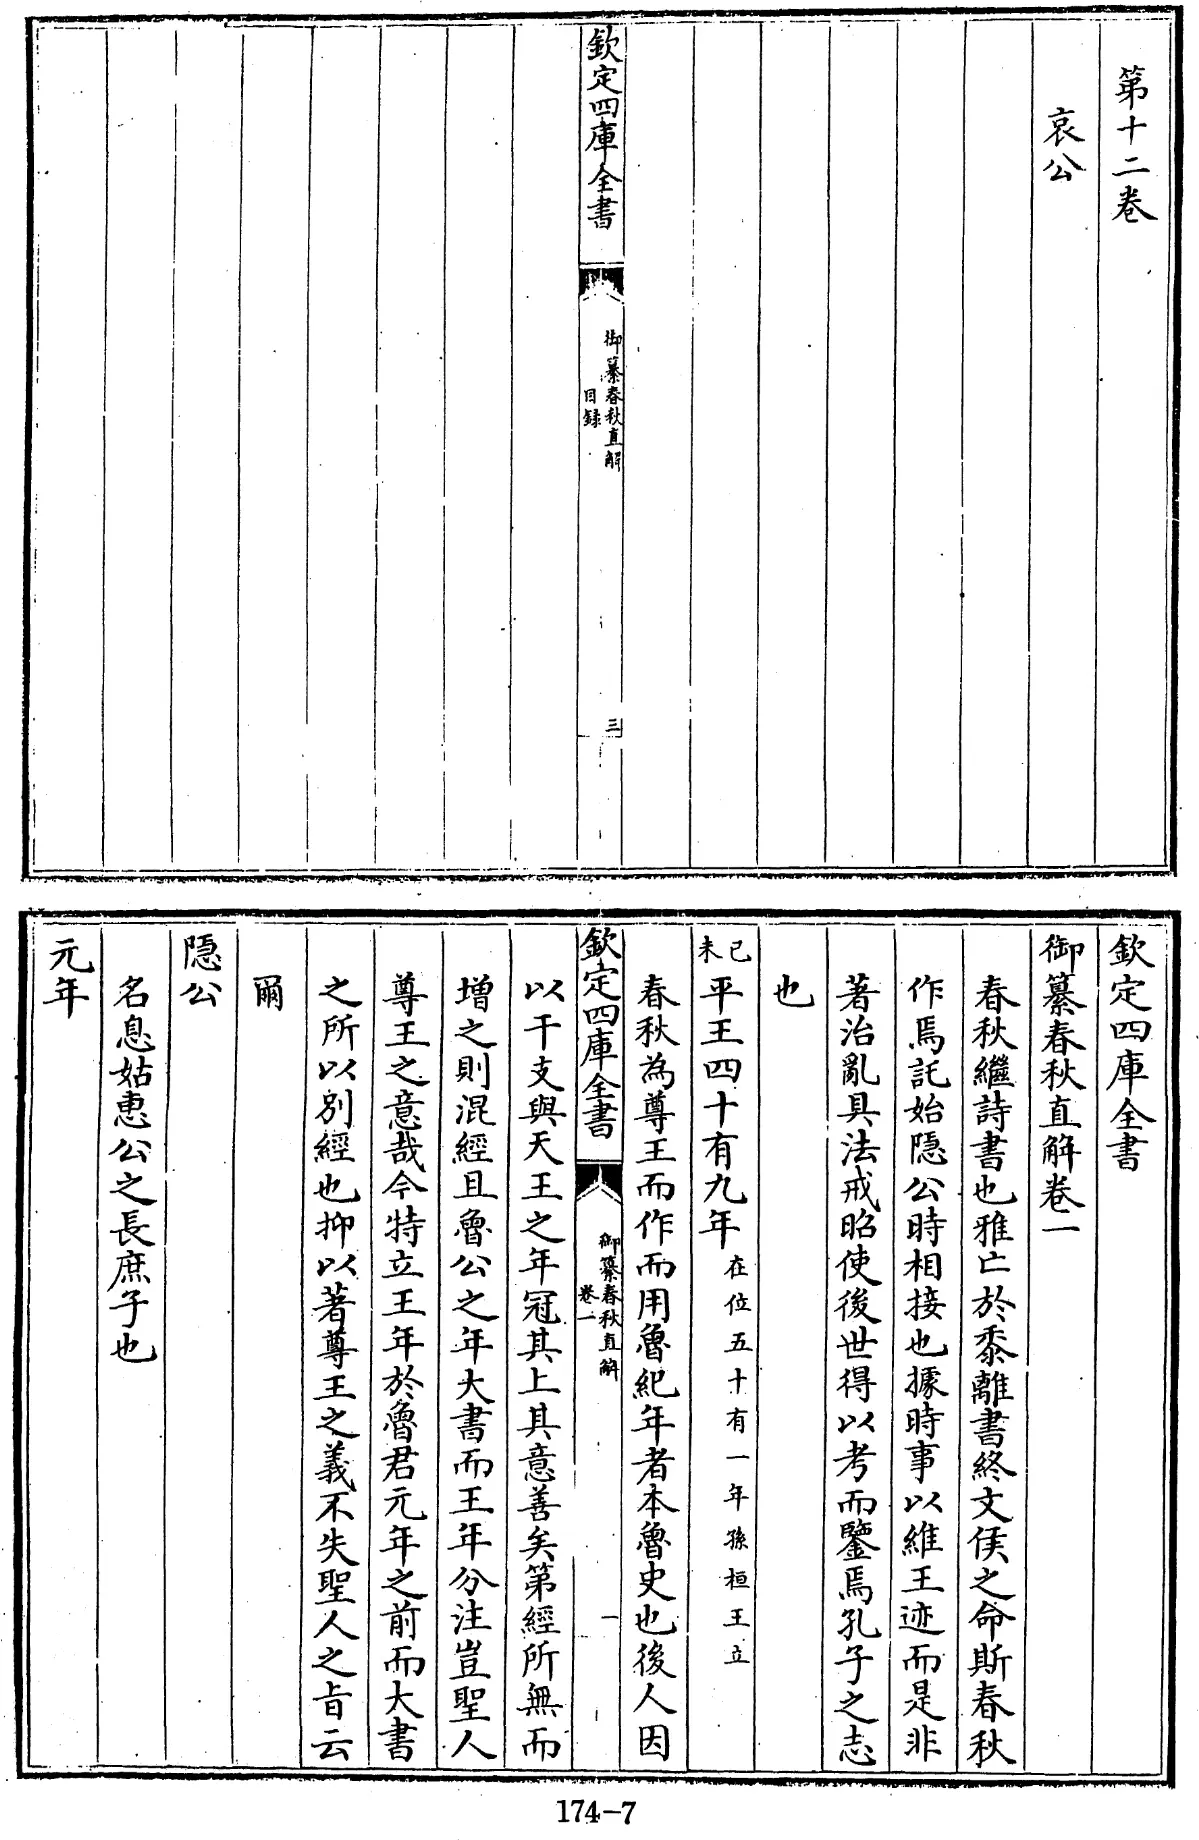 第十二卷
哀公
欽定四庫全書
御纂春秋直解
目録
三
欽定四庫全書
御纂春秋直解卷一
春秋繼詩書也雅亡於黍離書終文侯之命斯春秋
作焉託始隱公時相接也據時事以維王迹而是非
著治亂具法戒昭使後世得以考而鑒焉孔子之志
也
己未平王四十有九年在位五十有一年孫桓王立
春秋為尊王而作而用魯紀年者本魯史也後人因
欽定四庫全書
御纂春秋直解
卷一
一
以干支與天王之年冠其上其意善矣第經所無而
增之則混經且魯公之年大書而王年分注豈聖人
尊王之意哉今特立王年於魯君元年之前而大書
之所以別經也抑以著尊王之義不失聖人之旨云
爾
隱公
名息姑惠公之長庶子也
元年
174-7